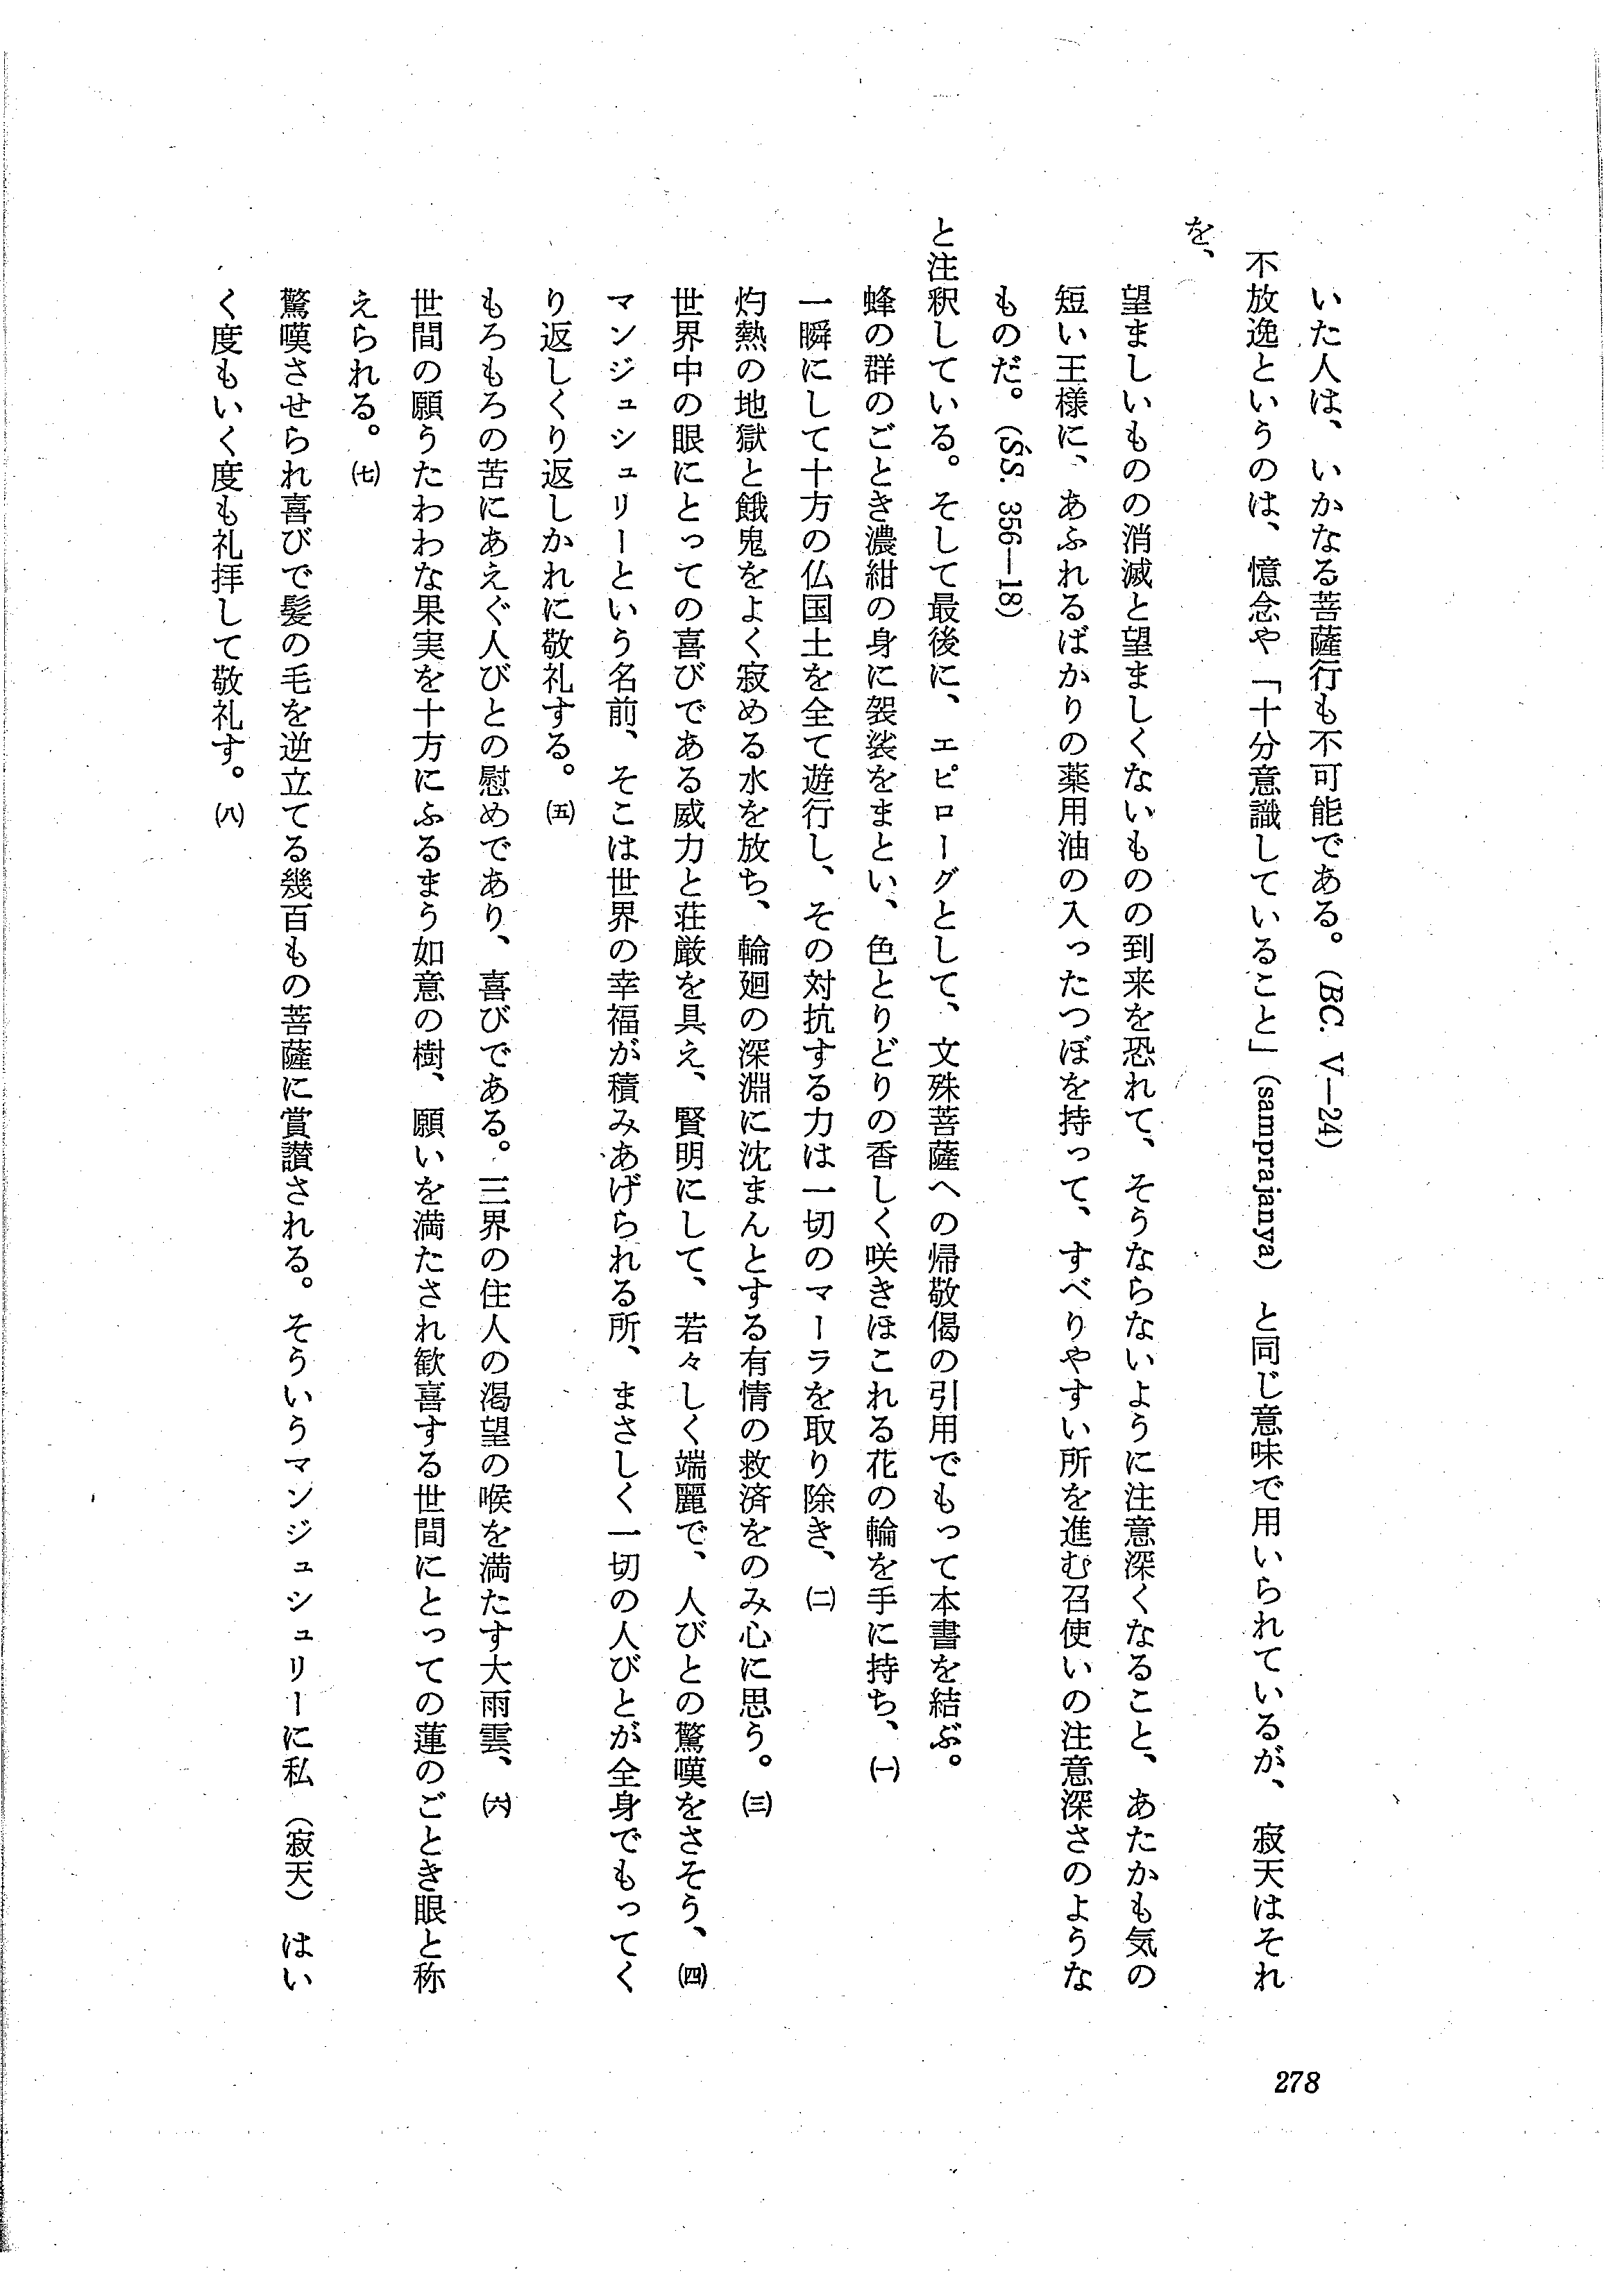 いた人は、いかなる菩薩行も不可能である。（BC. V—24）
不放逸というのは、憶念や「十分意識していること」（samprajanya）と同じ意味で用いられているが、寂天はそれ
を、
望ましいものの消滅と望ましくないものの到来を恐れて、そうならないように注意深くなること、あたかも気の
短い王様に、あふれるばかりの薬用油の入ったつぼを持って、すべりやすい所を進む召使いの注意深さのような
ものだ。（ŚS. 356—18）
と注釈している。そして最後に、エピローグとして、文殊菩薩への帰敬偈の引用でもって本書を結ぶ。
蜂の群のごとき濃紺の身に袈裟をまとい、色とりどりの香しく咲きほこれる花の輪を手に持ち、㈠
一瞬にして十方の仏国土を全て遊行し、その対抗する力は一切のマーラを取り除き、㈡
灼熱の地獄と餓鬼をよく寂める水を放ち、輪廻の深淵に沈まんとする有情の救済をのみ心に思う。㈢
世界中の眼にとっての喜びである威力と荘厳を具え、賢明にして、若々しく端麗で、人びとの驚嘆をさそう、㈣
マンジュシュリーという名前、そこは世界の幸福が積みあげられる所、まさしく一切の人びとが全身でもってく
り返しくり返しかれに敬礼する。㈤
もろもろの苦にあえぐ人びとの慰めであり、喜びである。三界の住人の渇望の喉を満たす大雨雲、㈥
世間の願うたわわな果実を十方にふるまう如意の樹、願いを満たされ歓喜する世間にとっての蓮のごとき眼と称
えられる。㈦
驚嘆させられ喜びで髪の毛を逆立てる幾百もの菩薩に賞讃される。そういうマンジュシュリーに私（寂天）はい
く度もいく度も礼拝して敬礼す。㈧
278